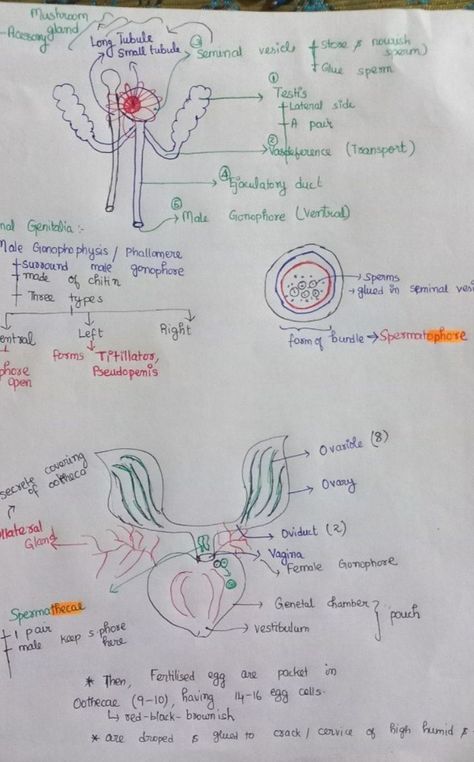 Mushroom
gland
Accessory
Long Tubule
Small tubule
③
Seminal vesicle
Store & nourish
sperm)
Glue sperm
①
Testis
Lateral side
A pair
② Vasdeference (Transport)
④ Ejaculatory duct
⑤ Male Gonophore (Ventral)
nal Genitalia :-
Male Gonophophysis / Phallomere
surround male gonophore
made of chitin
Three types
entral
Left
Right
phose
open
forms Titillator,
Pseudopenis
Sperms
glued in seminal vesi
form of bundle → Spermatophore
secrets covering
of ootheca
Ovariole (8)
Ovary
llateral
Gland
Oviduct (2)
Vagina
Female Gonophore
Spermathecae
1 pair
male keep s.phose
here
Genetal chamber
vestibulum
pouch
* Then, Fertilised egg are packet in
Oothecae (9-10), having 14-16 egg cells.
↳ red-black-brownish
* are droped & glued to crack / cervice of high humid &